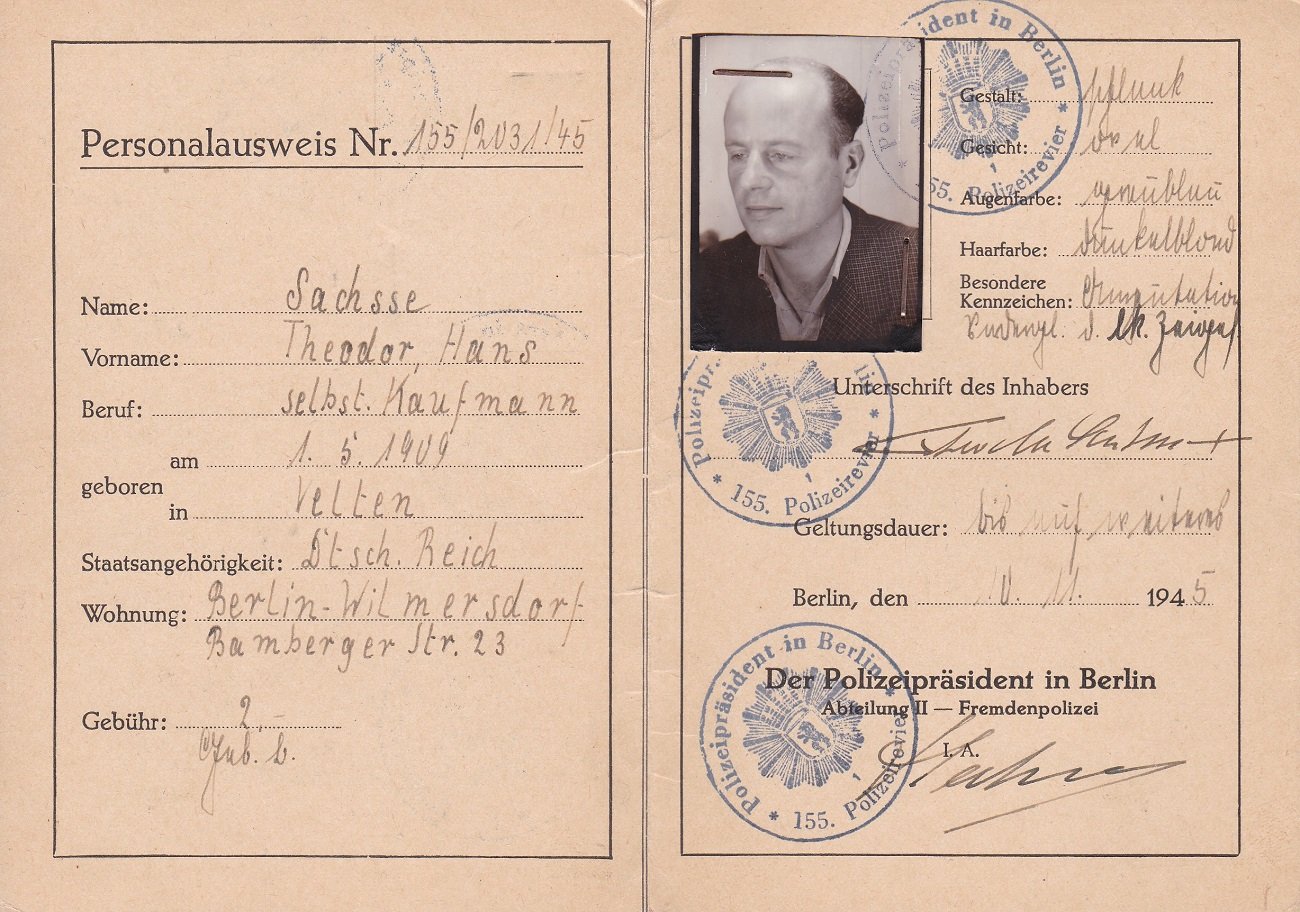 Personalausweis Nr. 155/2031/45
Name: Sachsse
Vorname: Theodor, Hans
Beruf: selbst. Kaufmann
geboren am 1. 5. 1909
in Velten
Staatsangehörigkeit: Dtsch. Reich
Wohnung: Berlin-Wilmersdorf
Bamberger Str. 23
Gebühr: 2,-
Polizeipräsident in Berlin
* 155. Polizeirevier *
1
Gestalt: schlank
Gesicht: oval
Augenfarbe: graublau
Haarfarbe: dunkelblond
Besondere
Kennzeichen: Amputation
d. lk. Zeigef
Unterschrift des Inhabers
Polizeipräsident in Berlin
* 155. Polizeirevier *
1
Geltungsdauer: bis auf weiteres
Berlin, den 10. 11. 1945
Der Polizeipräsident in Berlin
Abteilung II — Fremdenpolizei
I. A.
Polizeipräsident in Berlin
* 155. Polizeirevier *
1